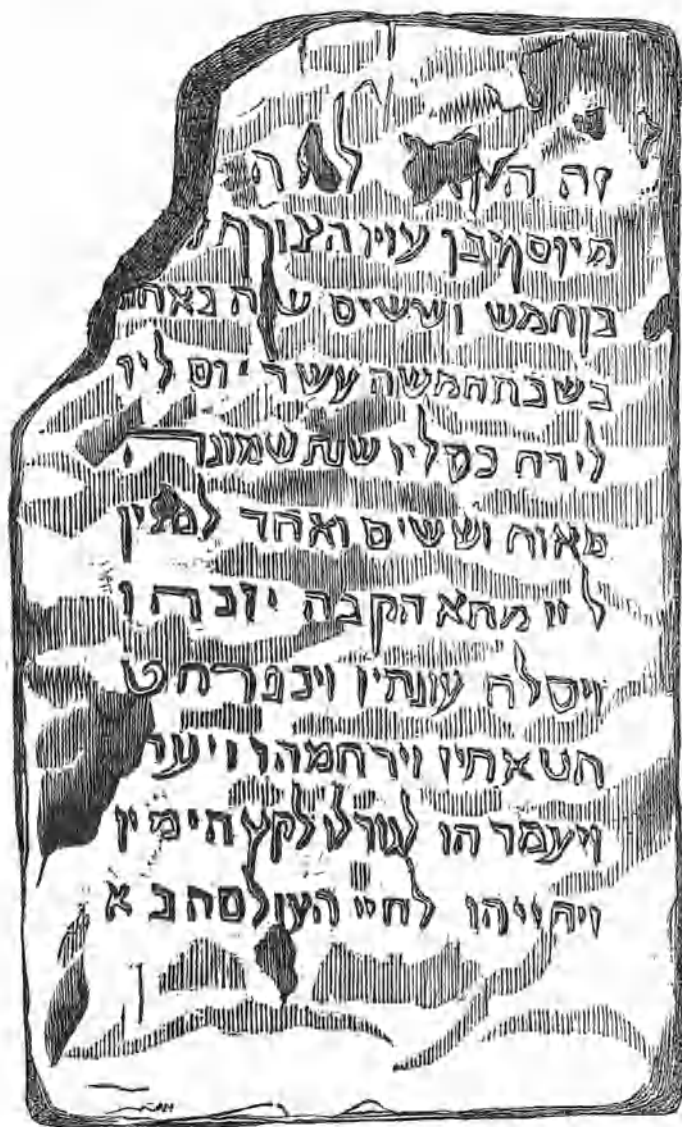 זה
מיוסף בן עזיז הצורף
בן חמש וששים שנה באחד
בשבת חמשה עשר יום ליו
לירח כסליו שנת שמונה
מאות וששים ואחד למנין
מתא הקבה יזכהו
ויסלח עונתיו ויכפר חט
חטאתיו וירחמהו
ויעמדהו לגורלו לקץ הימין
ויחייהו לחיי העולם הבא